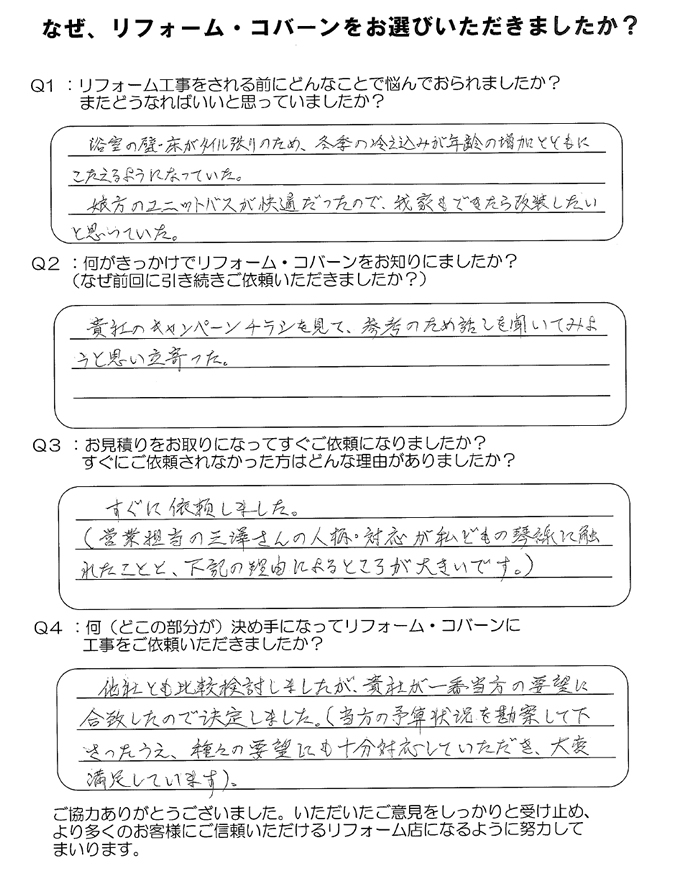 なぜ、リフォーム・コバーンをお選びいただきましたか？
Q1 ：リフォーム工事をされる前にどんなことで悩んでおられましたか？
またどうなればいいと思っていましたか？
浴室の壁・床がタイル張りのため、冬季の冷え込みが年齢の増加とともに
こたえるようになっていた。
娘方のユニットバスが快適だったので、我家もできたら改装したい
と思っていた。
Q2 ：何がきっかけでリフォーム・コバーンをお知りにましたか？
（なぜ前回に引き続きご依頼いただきましたか？）
貴社のキャンペーンチラシを見て、参考のため話しを聞いてみよ
うと思い立寄った。
Q3 ：お見積りをお取りになってすぐご依頼になりましたか？
すぐにご依頼されなかった方はどんな理由がありましたか？
すぐに依頼しました。
（営業担当の三澤さんの人柄・対応が私どもの琴線に触
れたことと、下記の理由によるところが大きいです。）
Q4 ：何（どこの部分が）決め手になってリフォーム・コバーンに
工事をご依頼いただきましたか？
他社とも比較検討しましたが、貴社が一番当方の要望に
合致したので決定しました。（当方の予算状況を勘案して下
さったうえ、種々の要望にも十分対応していただき、大変
満足しています）。
ご協力ありがとうございました。いただいたご意見をしっかりと受け止め、
より多くのお客様にご信頼いただけるリフォーム店になるように努力して
まいります。